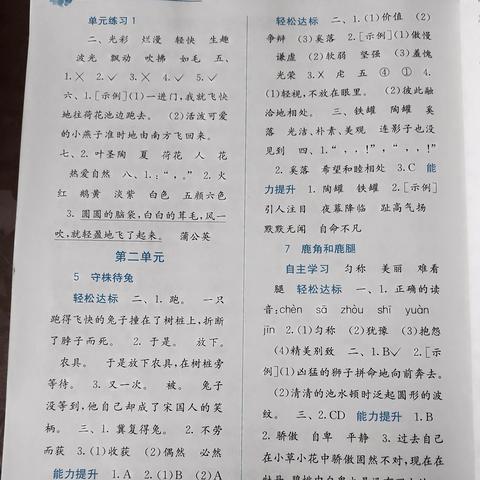 单元练习1
二、光彩 烂漫 轻快 生趣
波光 飘动 吹拂 如毛 五、
1.× 2.✓ 3.× 4.✓ 5.✓
六、1.[示例](1)一进门,我就飞快
地往荷花池边跑去。 (2)活泼可爱
的小燕子准时地由南方飞回来。
七、2.叶圣陶 夏 荷花 人 花
热爱自然 八、1.:“,。” 2.火
红 鹅黄 淡紫 白色 五颜六色
3.圆圆的脑袋,白白的茸毛,风一
吹,就轻盈地飞了起来。 蒲公英
第二单元
5 守株待兔
轻松达标 二、1.跑。 一只
跑得飞快的兔子撞在了树桩上,折断
了脖子而死。 2.于是。 放下。
农具。 于是放下农具,在树桩旁
等待。 3.又一次。 被。 兔子
没等到,他自己却成了宋国人的笑
柄。 三、1.冀复得兔。 2.不劳
而获 3.(1)收获 (2)偶然 必然
能力提升 1.A 2.(1)B (2)A
轻松达标 二、1.(1)价值 (2)
争辩 (3)奚落 2.[示例](1)傲慢
谦虚 (2)软弱 坚强 (3)羞愧
光荣 3.× 虎 五 ④ ① 4.
(1)轻视,不放在眼里。 (2)彼此融
洽地相处。 三、铁罐 陶罐 奚
落 光洁、朴素、美观 连影子也没
见到 四、1.“,,!”,“,,!”
2.奚落 希望和睦相处 3.C 能
力提升 1.陶罐 铁罐 2.[示例]
引人注目 夜幕降临 趾高气扬
默默无闻 自命不凡
7 鹿角和鹿腿
自主学习 匀称 美丽 难看
腿 轻松达标 一、1.正确的读
音:chèn sā zhòu shī yuàn
jīn 2.(1)匀称 (2)犹豫 (3)抱怨
(4)精美别致 二、1.B✓ 2.[示
例](1)凶猛的狮子拼命地向前奔去。
(2)清清的池水顿时泛起圆形的波
纹。 三、2.CD 能力提升 1.B
2.骄傲 自卑 平静 3.过去自己
在小草小花中骄傲固然不对,现在在